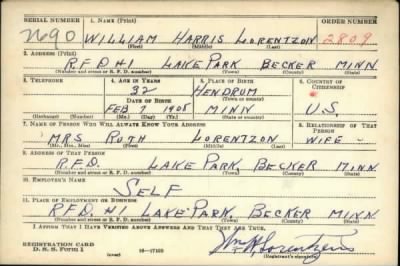 SERIAL NUMBER 1. NAME (Print) ORDER NUMBER
N690 WILLIAM HARRIS LORENTZON 2809
(First) (Middle) (Last)
2. ADDRESS (Print)
R.F.D #1 LAKE PARK BECKER MINN.
(Number and street or R. F. D. number) (Town) (County) (State)
3. TELEPHONE 4. AGE IN YEARS 5. PLACE OF BIRTH 6. COUNTRY OF CITIZENSHIP
32 HENDRUM
DATE OF BIRTH (Town or county)
FEB 7 1908 MINN U.S.
(Exchange) (No.) (Mo.) (Day) (Yr.) (State or country)
7. NAME OF PERSON WHO WILL ALWAYS KNOW YOUR ADDRESS 8. RELATIONSHIP OF THAT PERSON
MRS RUTH LORENTZON WIFE
(Mr., Mrs., Miss) (First) (Middle) (Last)
9. ADDRESS OF THAT PERSON
R.F.D. LAKE PARK, BECKER MINN.
(Number and street or R. F. D. number) (Town) (County) (State)
10. EMPLOYER'S NAME
SELF
11. PLACE OF EMPLOYMENT OR BUSINESS
R.F.D. #1 LAKE PARK, BECKER MINN.
(Number and street or R. F. D. number) (Town) (County) (State)
I AFFIRM THAT I HAVE VERIFIED ABOVE ANSWERS AND THAT THEY ARE TRUE.
REGISTRATION CARD
D. S. S. FORM 1 (over) 16-17105 Wm H Lorentzon
(Registrant's signature)